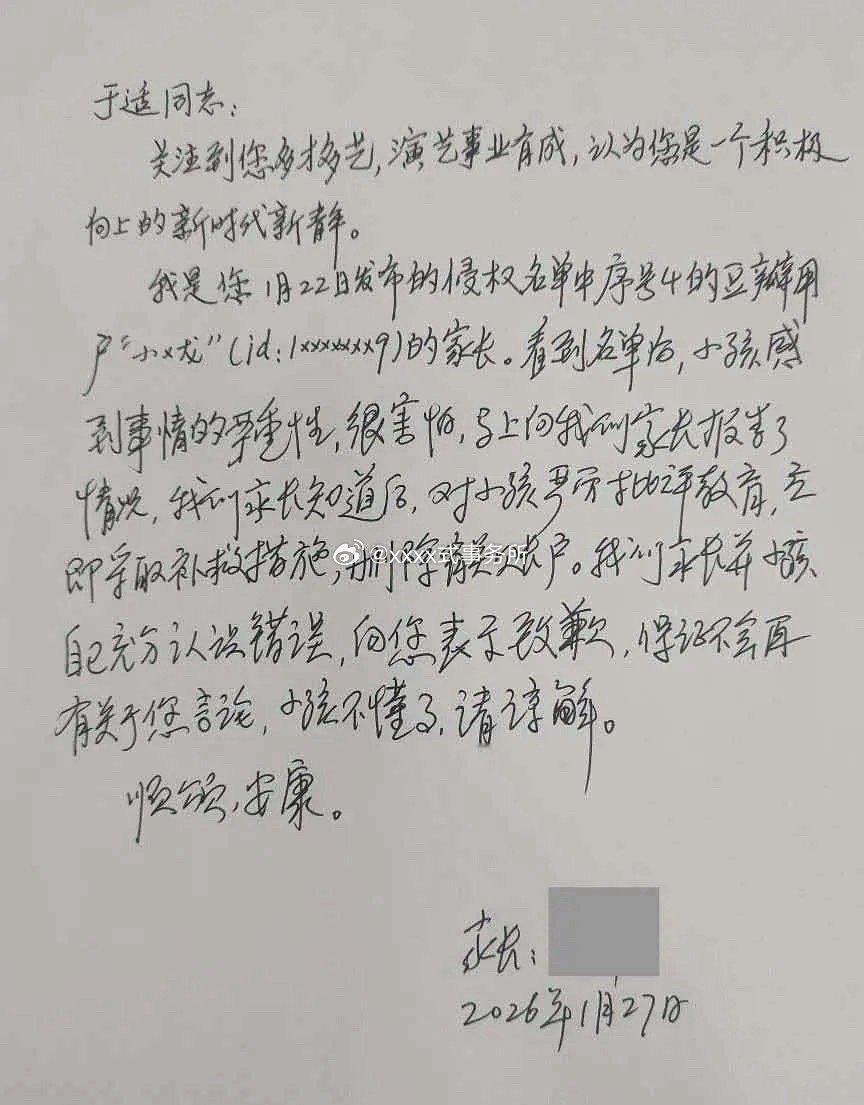 于适同志：
关注到您多才多艺，演艺事业有成，认为您是一个积极
向上的新时代新青年。
我是您1月22日发布的侵权名单中序号4的豆瓣用
户“小x龙”(id:1xxxxxxx9)的家长。看到名单后，小孩感
到事情的严重性，很害怕，马上向我们家长报告了
情况，我们家长知道后，对小孩严厉批评教育，立
即采取补救措施，删除该账户。我们家长并小孩
自己充分认识错误，向您表示致歉，保证不会再
有关于您言论，小孩不懂事，请谅解。
顺颂，安康。
@xxxx式事务所
家长：
2026年1月27日